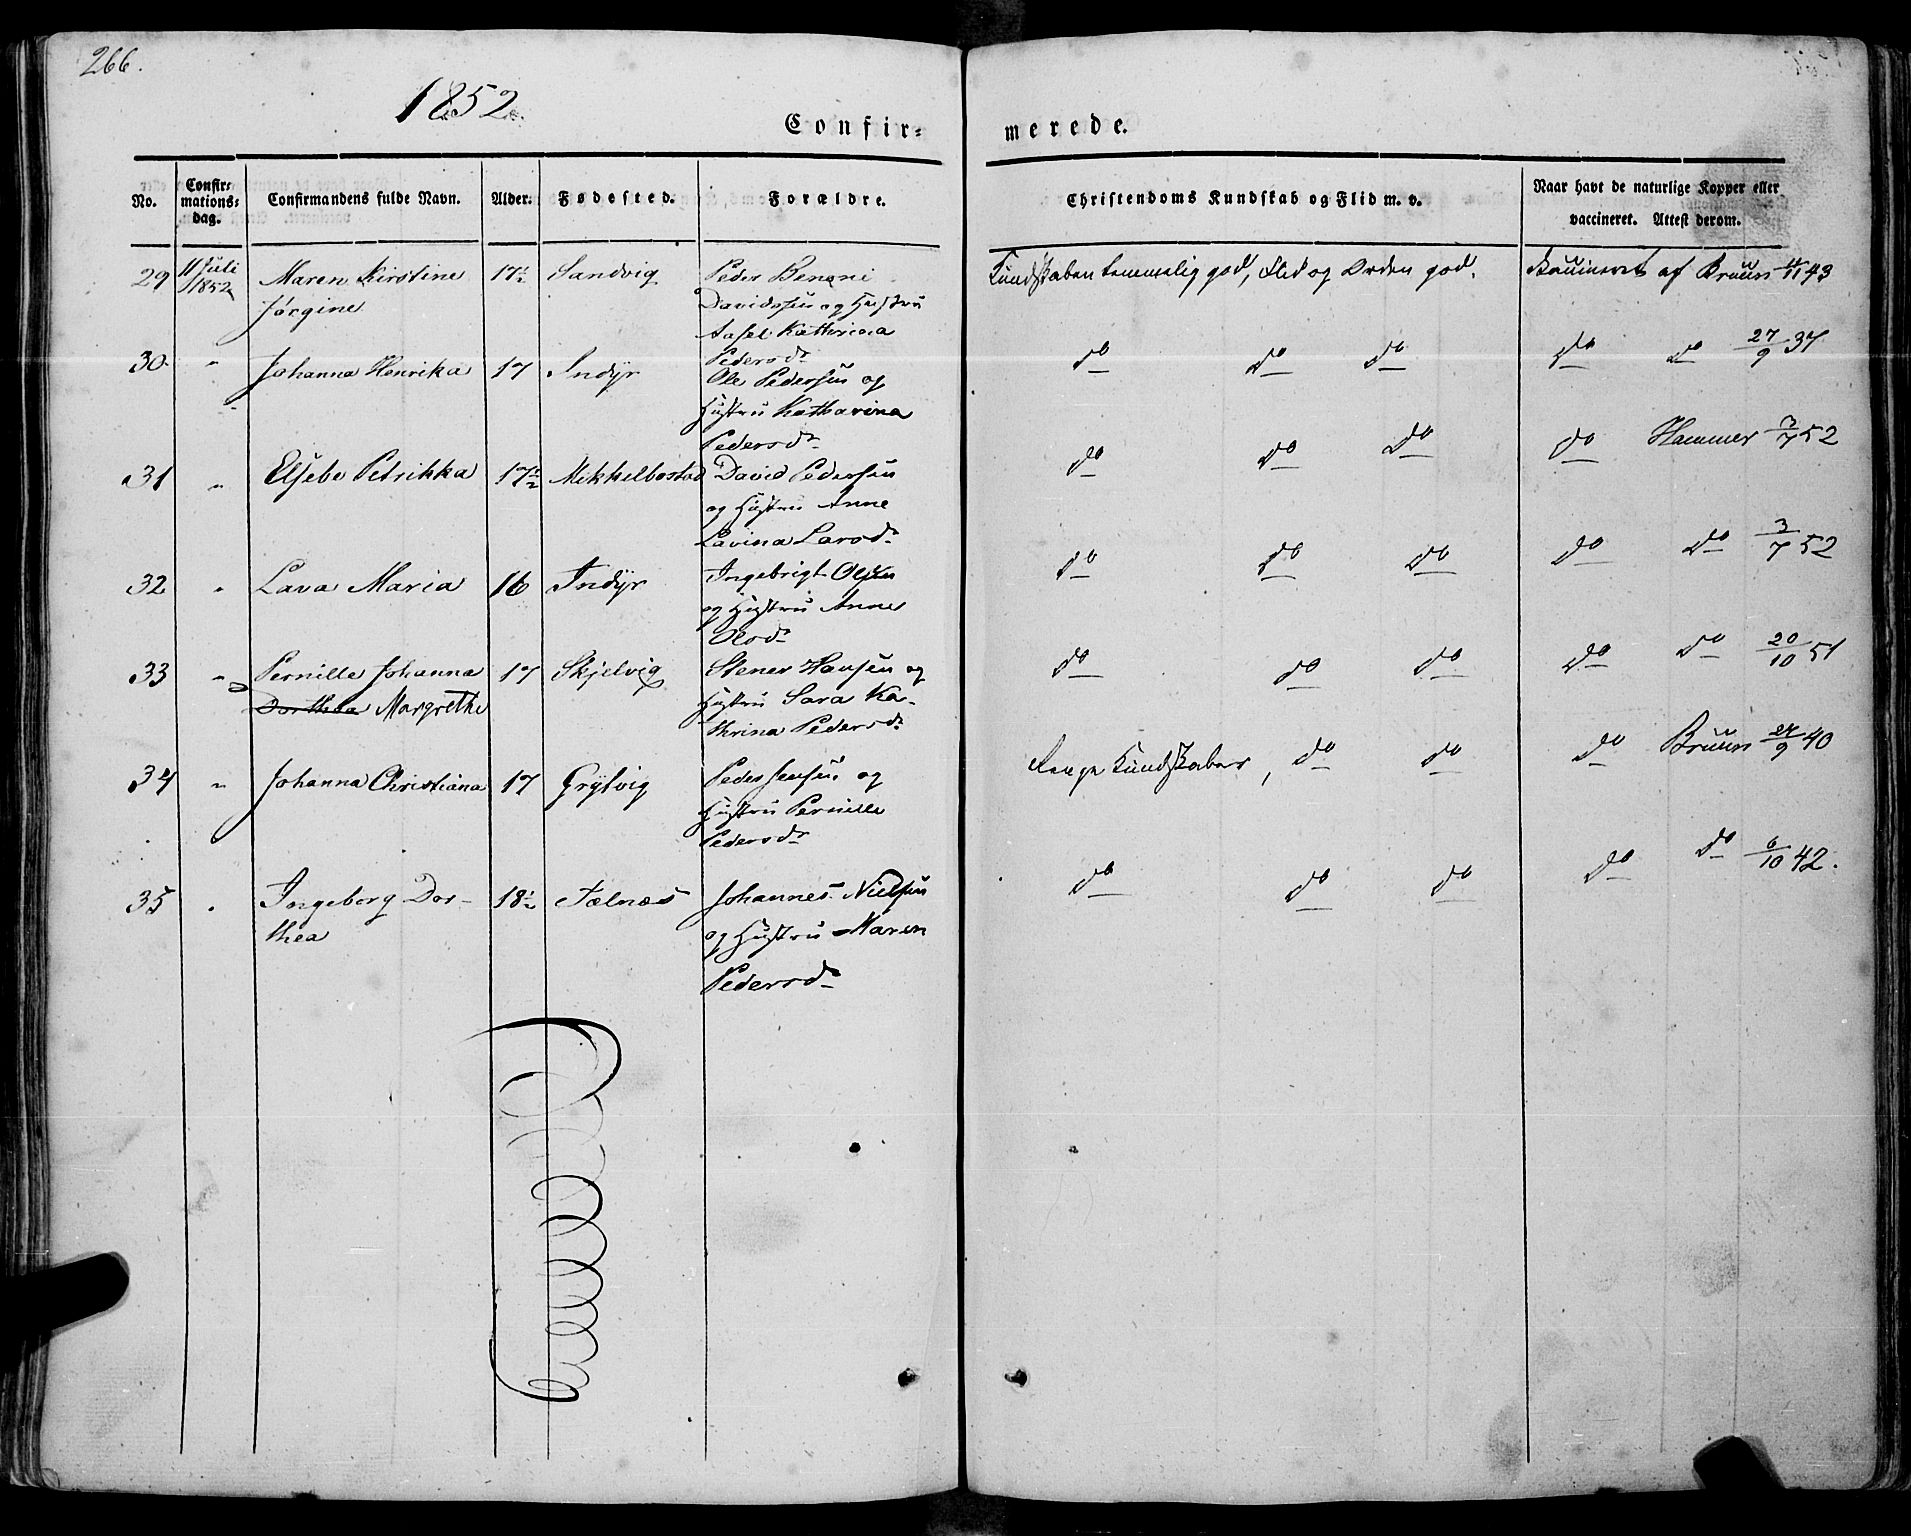 266.
1852.
Confir=
merede.
No.
Confir=
mations=
dag.
Confirmandens fulde Navn.
Alder.
Fødested.
Forældre.
Christendoms Kundskab og Flid m. v.
Naar havt de naturlige Kopper eller
vaccineret. Attest derom.
29 11 Juli Maren Kirstine 17½ Sandvig Peder Benoni Kundskaben temmelig god, Flid og Orden god. Vaccineret af Bruun 43
1852 Jørgine Davidssen og Hustru
Kathrina
Pedersd.
30. " Johanna Henrika 17 Indyr Ole Pedersen og do do do do do 27/9 37
Hustru Katharina
Pedersd.
31 " Elsebe Petrikka 17½ Mikkelbostad David Pedersen do do do do Hammer 3/7 52
og Hustru Anne
Lavina Larsd.
32 " Lava Maria 16 Indyr Ingebrigt Olsen do do do do do 3/7 52
og Hustru Anne
Olsd.
33 " Pernille Johanna 17 Skjelvig Stener Hansen og do do do do do 20/10 51
Dorthea Margrethe Hustru Sara Ka-
thrina Pedersd.
34 " Johanna Christiana 17 Grytvig Peder Jensen og Kundskaber, do do do Bruun 24/9 40
Hustru Pernille
Pedersd.
35 " Ingeborg Dor- 18½ Sælnæs Johannes Nielsen do do do do do 6/10 42.
thea og Hustru Maren
Pedersd.